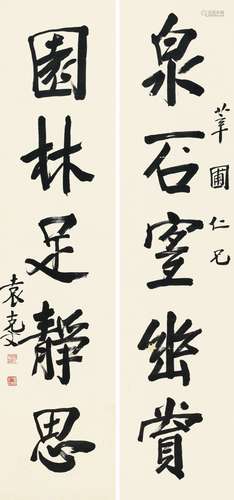 泉石幽賞
莘圃仁兄
園林足靜思
袁克文